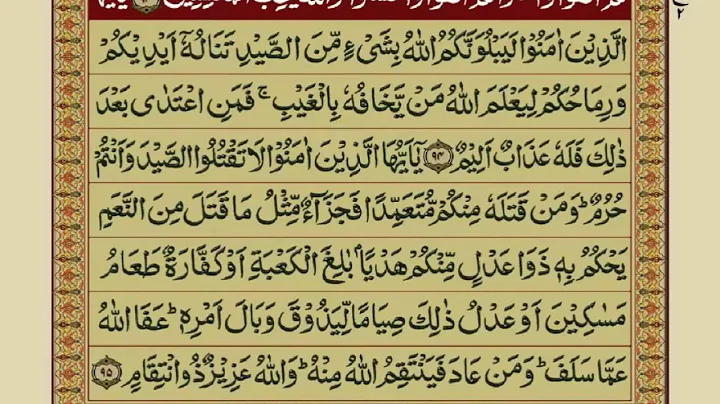 الَّذِيْنَ اٰمَنُوْا لَيَبْلُوَنَّكُمُ اللّٰهُ بِشَیْءٍ مِّنَ الصَّيْدِ تَنَالُهٗۤ اَيْدِيْكُمْ
وَرِمَاحُكُمْ لِيَعْلَمَ اللّٰهُ مَنْ يَّخَافُهٗ بِالْغَيْبِ ۚ فَمَنِ اعْتَدٰی بَعْدَ
ذٰلِكَ فَلَهٗ عَذَابٌ اَلِيْمٌ ﴿۹۴﴾ يٰۤاَيُّهَا الَّذِيْنَ اٰمَنُوْا لَا تَقْتُلُوا الصَّيْدَ وَاَنْتُمْ
حُرُمٌ ؕ وَمَنْ قَتَلَهٗ مِنْكُمْ مُّتَعَمِّدًا فَجَزَآءٌ مِّثْلُ مَا قَتَلَ مِنَ النَّعَمِ
يَحْكُمُ بِهٖ ذَوَا عَدْلٍ مِّنْكُمْ هَدْيًاۢ بٰلِغَ الْكَعْبَةِ اَوْ كَفَّارَةٌ طَعَامُ
مَسٰكِيْنَ اَوْ عَدْلُ ذٰلِكَ صِيَامًا لِّيَذُوْقَ وَبَالَ اَمْرِهٖ ؕ عَفَا اللّٰهُ
عَمَّا سَلَفَ ؕ وَمَنْ عَادَ فَيَنْتَقِمُ اللّٰهُ مِنْهُ ؕ وَاللّٰهُ عَزِيْزٌ ذُو انْتِقَامٍ ﴿۹۵﴾